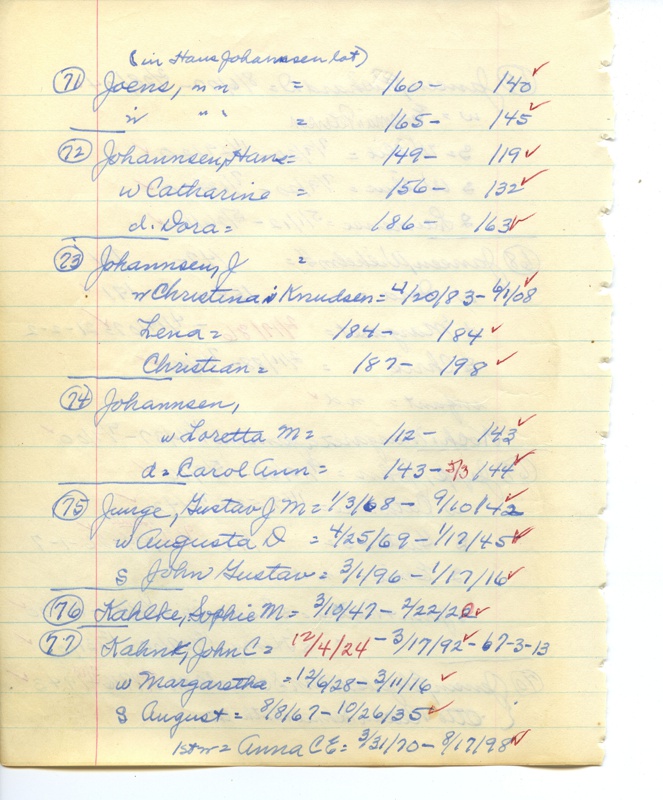 (in Hans Johannsen lot)
71 Joens, m m = /60 - /40 ✓
w " " = /65 - /45 ✓
72 Johannsen, Hans = /49 - /19 ✓
w Catharine = /56 - /32 ✓
d. Dora = /86 - /63 ✓
73 Johannsen, J =
w Christina Knudsen = 4/20/83 - 6/1/08 ✓
Lena = /84 - /84 ✓
Christian = /87 - /98 ✓
74 Johannsen,
w Loretta M = /12 - /43 ✓
d = Carol Ann = /43 - 5/3/44 ✓
75 Junge, Gustav J M = 1/3/68 - 9/10/42 ✓
w Augusta D = 4/25/69 - 1/17/45 ✓
S John Gustav = 3/1/96 - 1/17/16 ✓
76 Kahlke, Sophie M = 3/10/47 - 2/22/22 ✓
77 Kahnk, John C = 12/4/24 - 3/17/92 ✓ - 67-3-13
w Margaretha = 12/6/28 - 3/11/16 ✓
S August = 8/8/67 - 10/26/35 ✓
1st w = Anna C E = 3/31/70 - 8/17/98 ✓